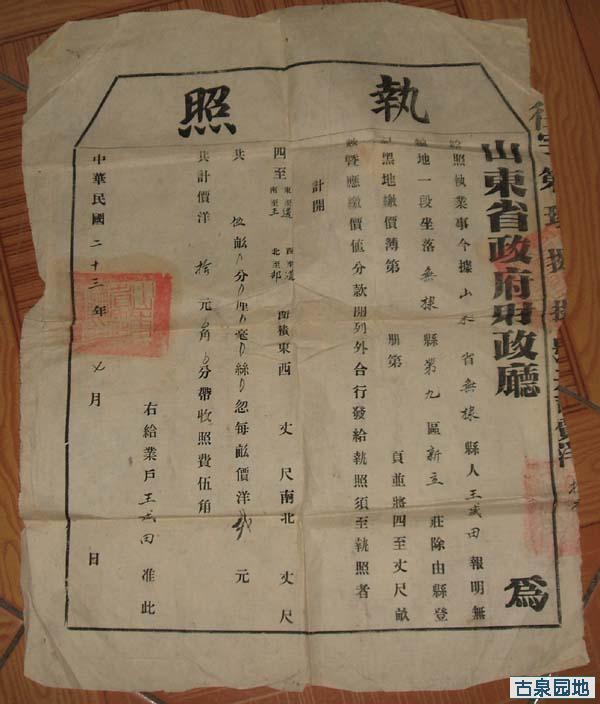 執照
山東省政府財政廳 為
給照執業事今據山東省無棣縣人王成田報明無
地一段坐落無棣縣第九區新立莊除由縣登
黑地繳價簿第 册第 頁並將四至丈尺畝
暨應繳價值分款開列外合行發給執照須至執照者
計開
四至 東至道 西至道 南至王 北至邦 面積東西 丈 尺南北 丈 尺
共 伍畝0分0厘0毫0絲0忽每畝價洋 元
共計價洋 拾 元0角0分帶收照費伍角
右給業戶王成田准此
中華民國二十三年 七 月 日
古泉园地